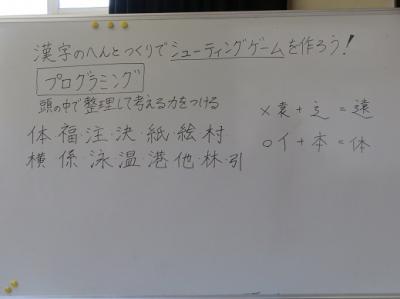 漢字のへんとつくりでシューティングゲームを作ろう!
プログラミング
頭の中で整理して考える力をつける
体・福・注・決・紙・絵・村
横・係・泳・温・港・他・林・引
×袁+辶=遠
○イ+本=体